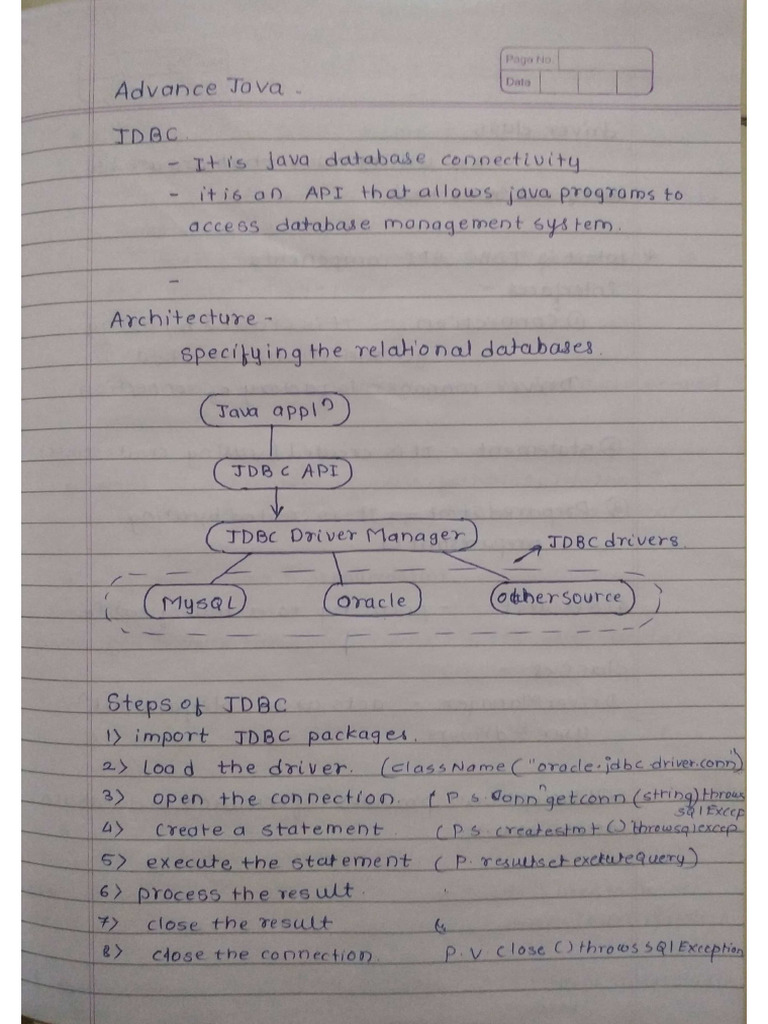 Page No.
Date
Advance Java -
JDBC
- It is java database connectivity
- it is an API that allows java programs to
access database management system.
-
Architecture -
specifying the relational databases.
Java appln
JDBC API
JDBC Driver Manager
JDBC drivers
MySQL
oracle
other source
Steps of JDBC
1) import JDBC packages.
2) Load the driver. (className("oracle.jdbc driver.conn")
3) open the connection. ( P s. Connn getconn (string) throws
SQl Excep
4) create a statement (P s createstmt () throwsqlexcep
5) execute the statement ( P. resultset exctutequery)
6) process the result.
7) close the result
8) close the connection. P. V close () throws SQl Exception